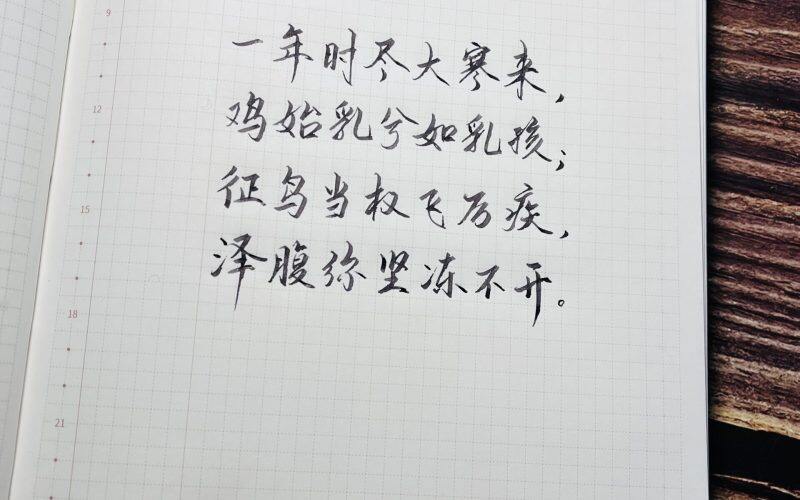 9
一年时尽大寒来，
12
鸡始乳兮如乳孩；
15
征鸟当权飞厉疾，
泽腹弥坚冻不开。
18
21